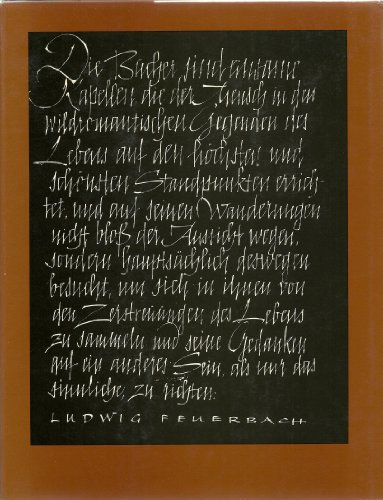 Die Bücher sind einsame
Kapellen die der Mensch in den
wildromantischen Gegenden des
Lebens auf den höchsten und
schönsten Standpunkten errich-
tet, und auf seinen Wanderungen
nicht bloß der Aussicht wegen,
sondern hauptsächlich deswegen
besucht, um sich in ihnen von
den Zerstreuungen des Lebens
zu sammeln und seine Gedanken
auf ein anderes Sein, als nur das
sinnliche, zu richten.
LUDWIG FEUERBACH